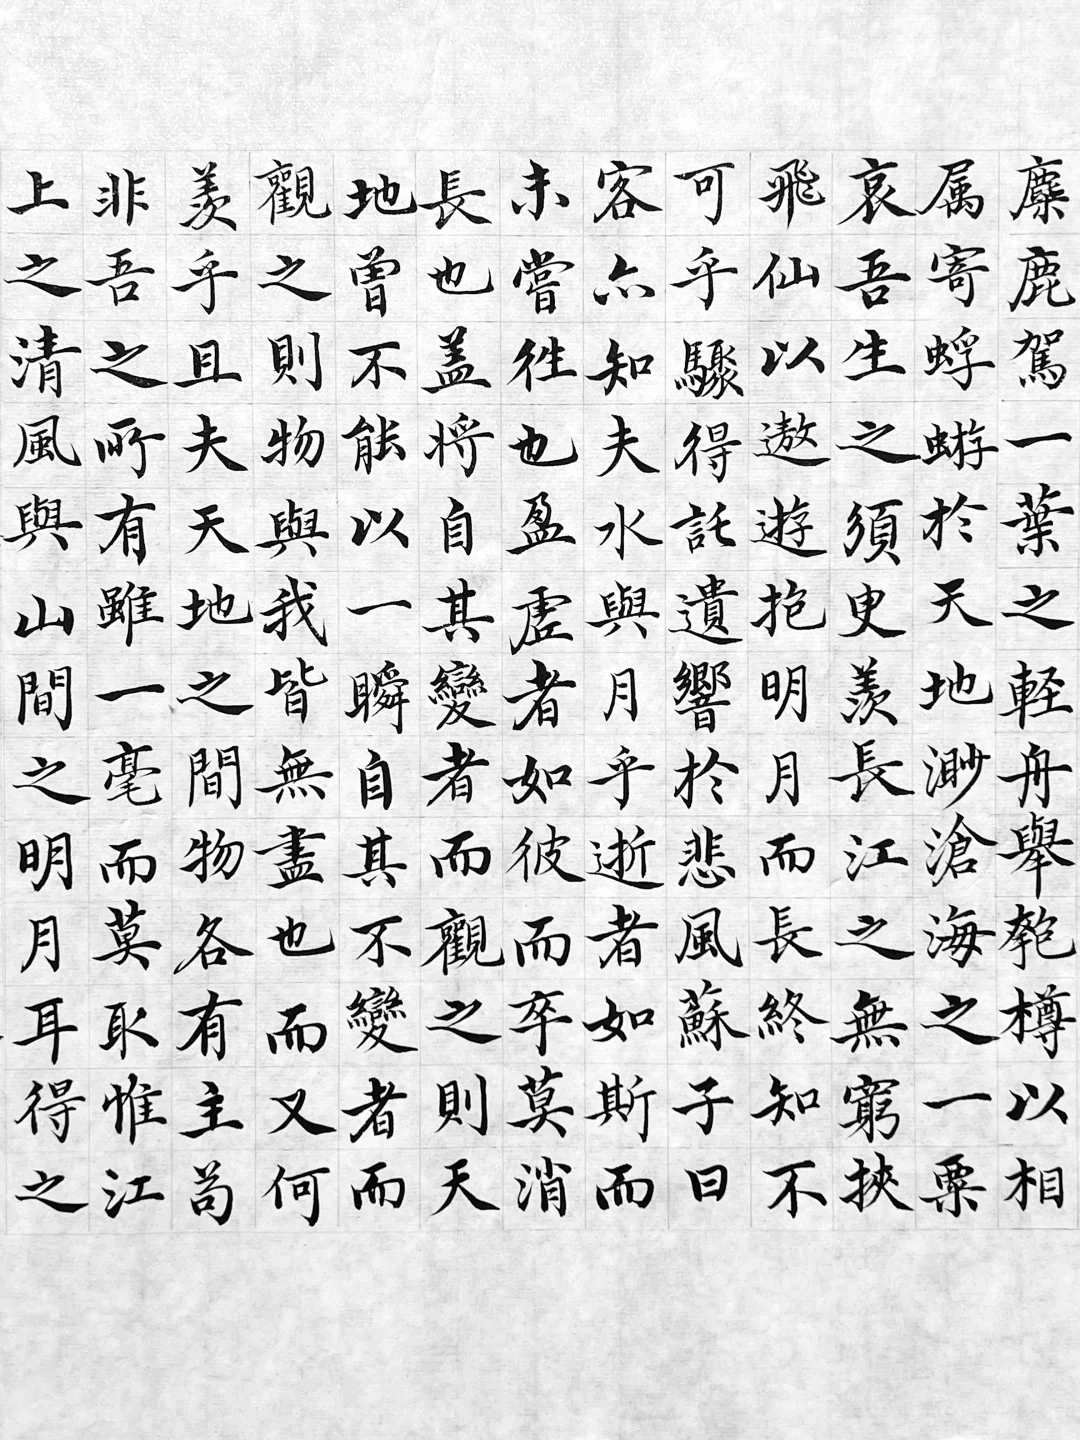 麋鹿駕一葉之軽舟舉匏樽以相
属寄蜉蝣於天地渺滄海之一粟
哀吾生之須臾羨長江之無窮挾
飛仙以遨遊抱明月而長終知不
可乎驟得託遺響於悲風蘇子曰
客亦知夫水與月乎逝者如斯而
未嘗往也盈虛者如彼而卒莫消
長也盖将自其變者而觀之則天
地曾不能以一瞬自其不變者而
觀之則物與我皆無盡也而又何
羨乎且夫天地之間物各有主苟
非吾之所有雖一毫而莫取惟江
上之清風與山間之明月耳得之